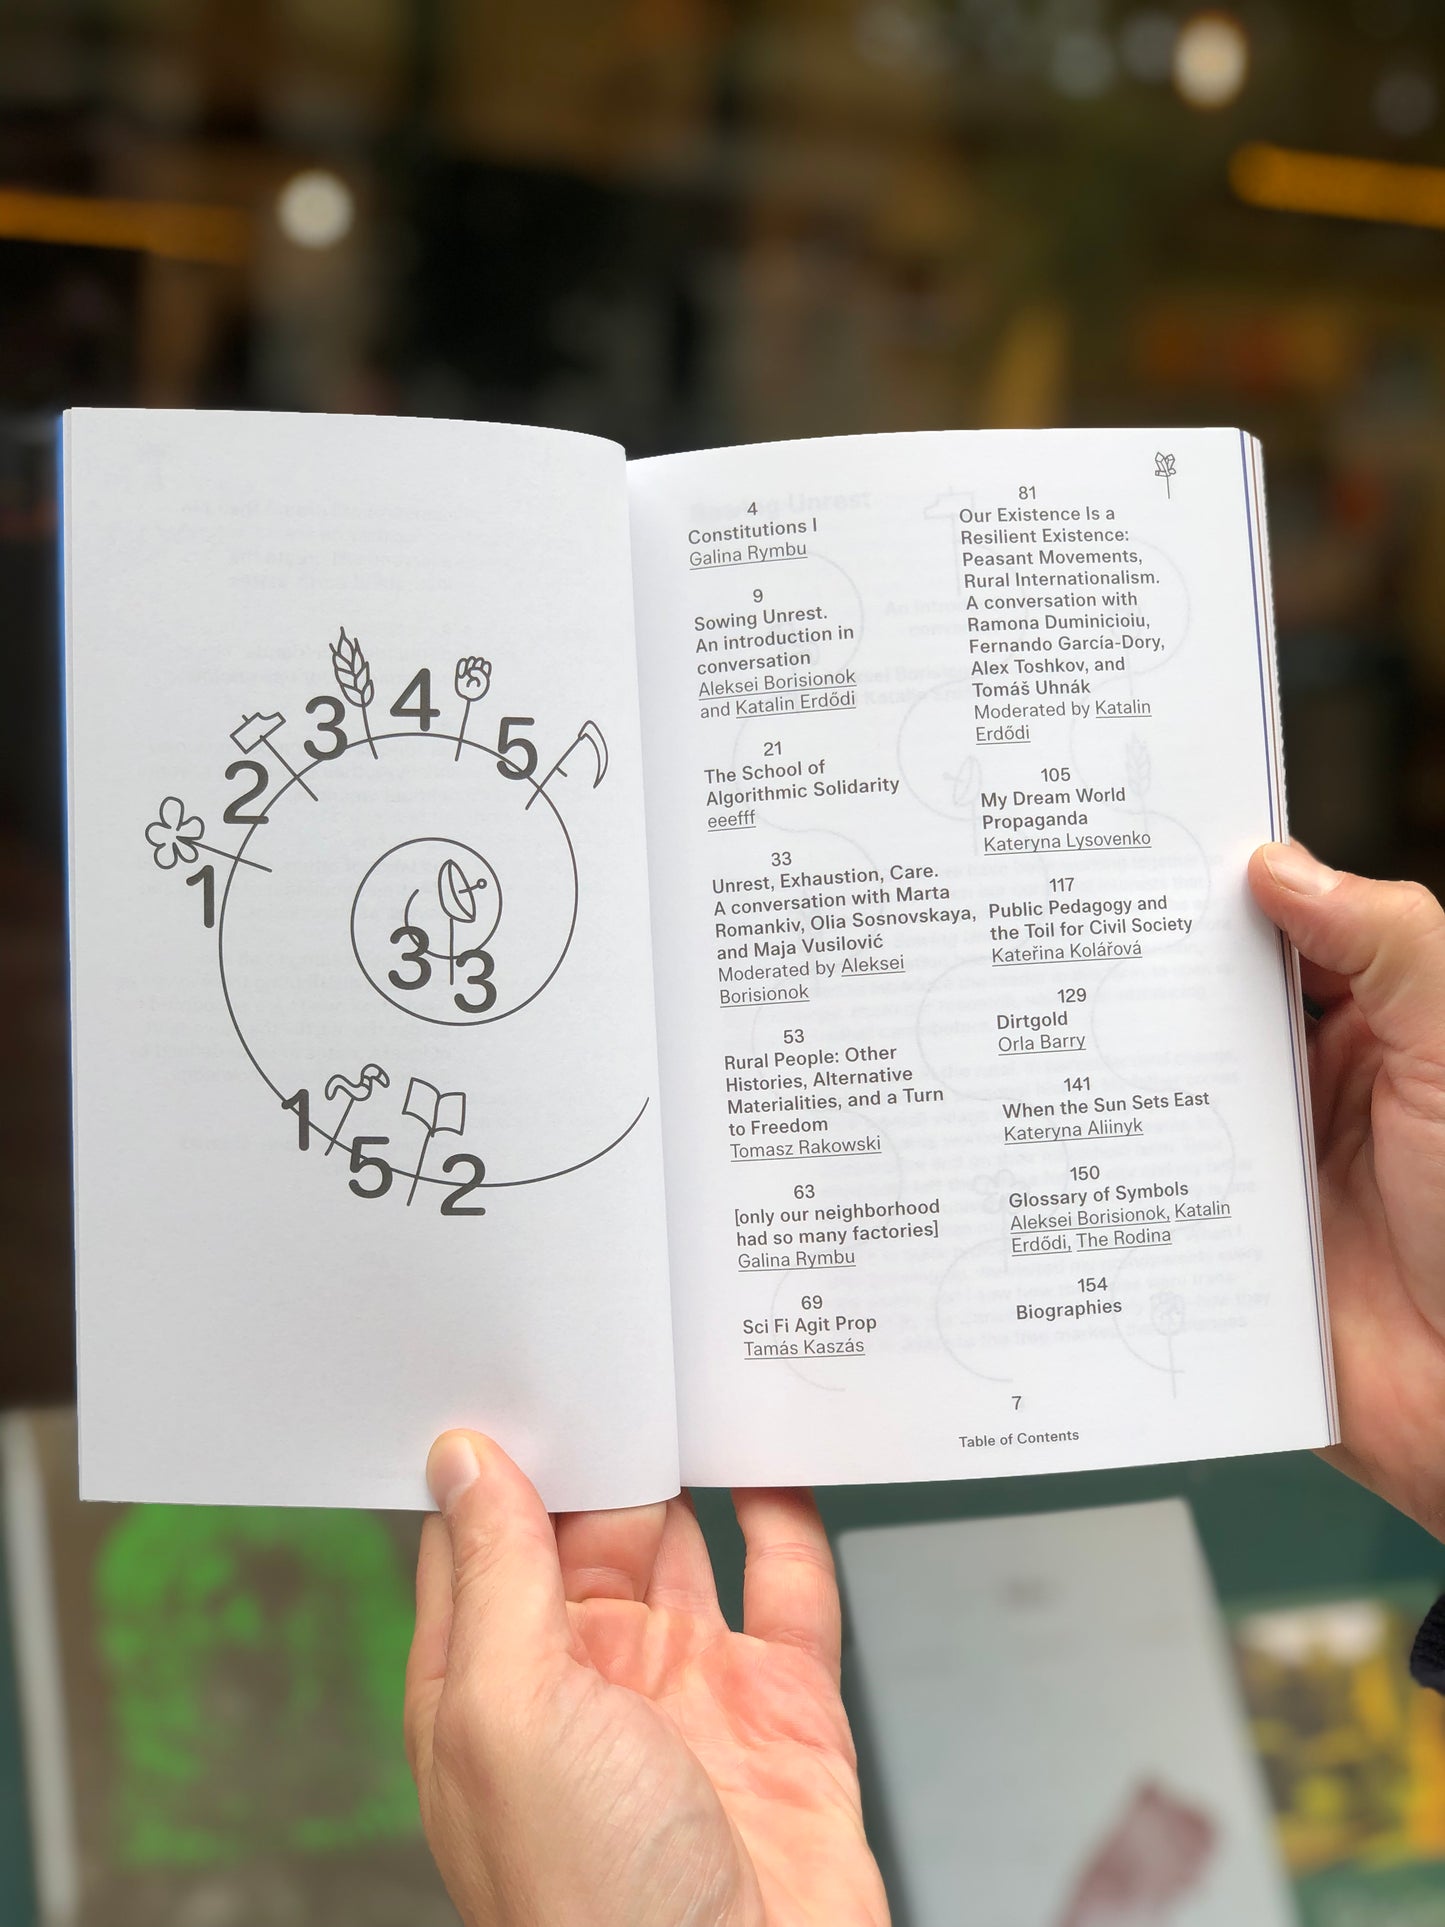 1
2
3
4
5
3 3
1 5 2
4
Constitutions I
Galina Rymbu
9
Sowing Unrest.
An introduction in
conversation
Aleksei Borisionok
and Katalin Erdődi
21
The School of
Algorithmic Solidarity
eeefff
33
Unrest, Exhaustion, Care.
A conversation with Marta
Romankiv, Olia Sosnovskaya,
and Maja Vusilović
Moderated by Aleksei
Borisionok
53
Rural People: Other
Histories, Alternative
Materialities, and a Turn
to Freedom
Tomasz Rakowski
63
[only our neighborhood
had so many factories]
Galina Rymbu
69
Sci Fi Agit Prop
Tamás Kaszás
81
Our Existence Is a
Resilient Existence:
Peasant Movements,
Rural Internationalism.
A conversation with
Ramona Duminicioiu,
Fernando García-Dory,
Alex Toshkov, and
Tomáš Uhnák
Moderated by Katalin
Erdődi
105
My Dream World
Propaganda
Kateryna Lysovenko
117
Public Pedagogy and
the Toil for Civil Society
Kateřina Kolářová
129
Dirtgold
Orla Barry
141
When the Sun Sets East
Kateryna Aliinyk
150
Glossary of Symbols
Aleksei Borisionok, Katalin
Erdődi, The Rodina
154
Biographies
7
Table of Contents